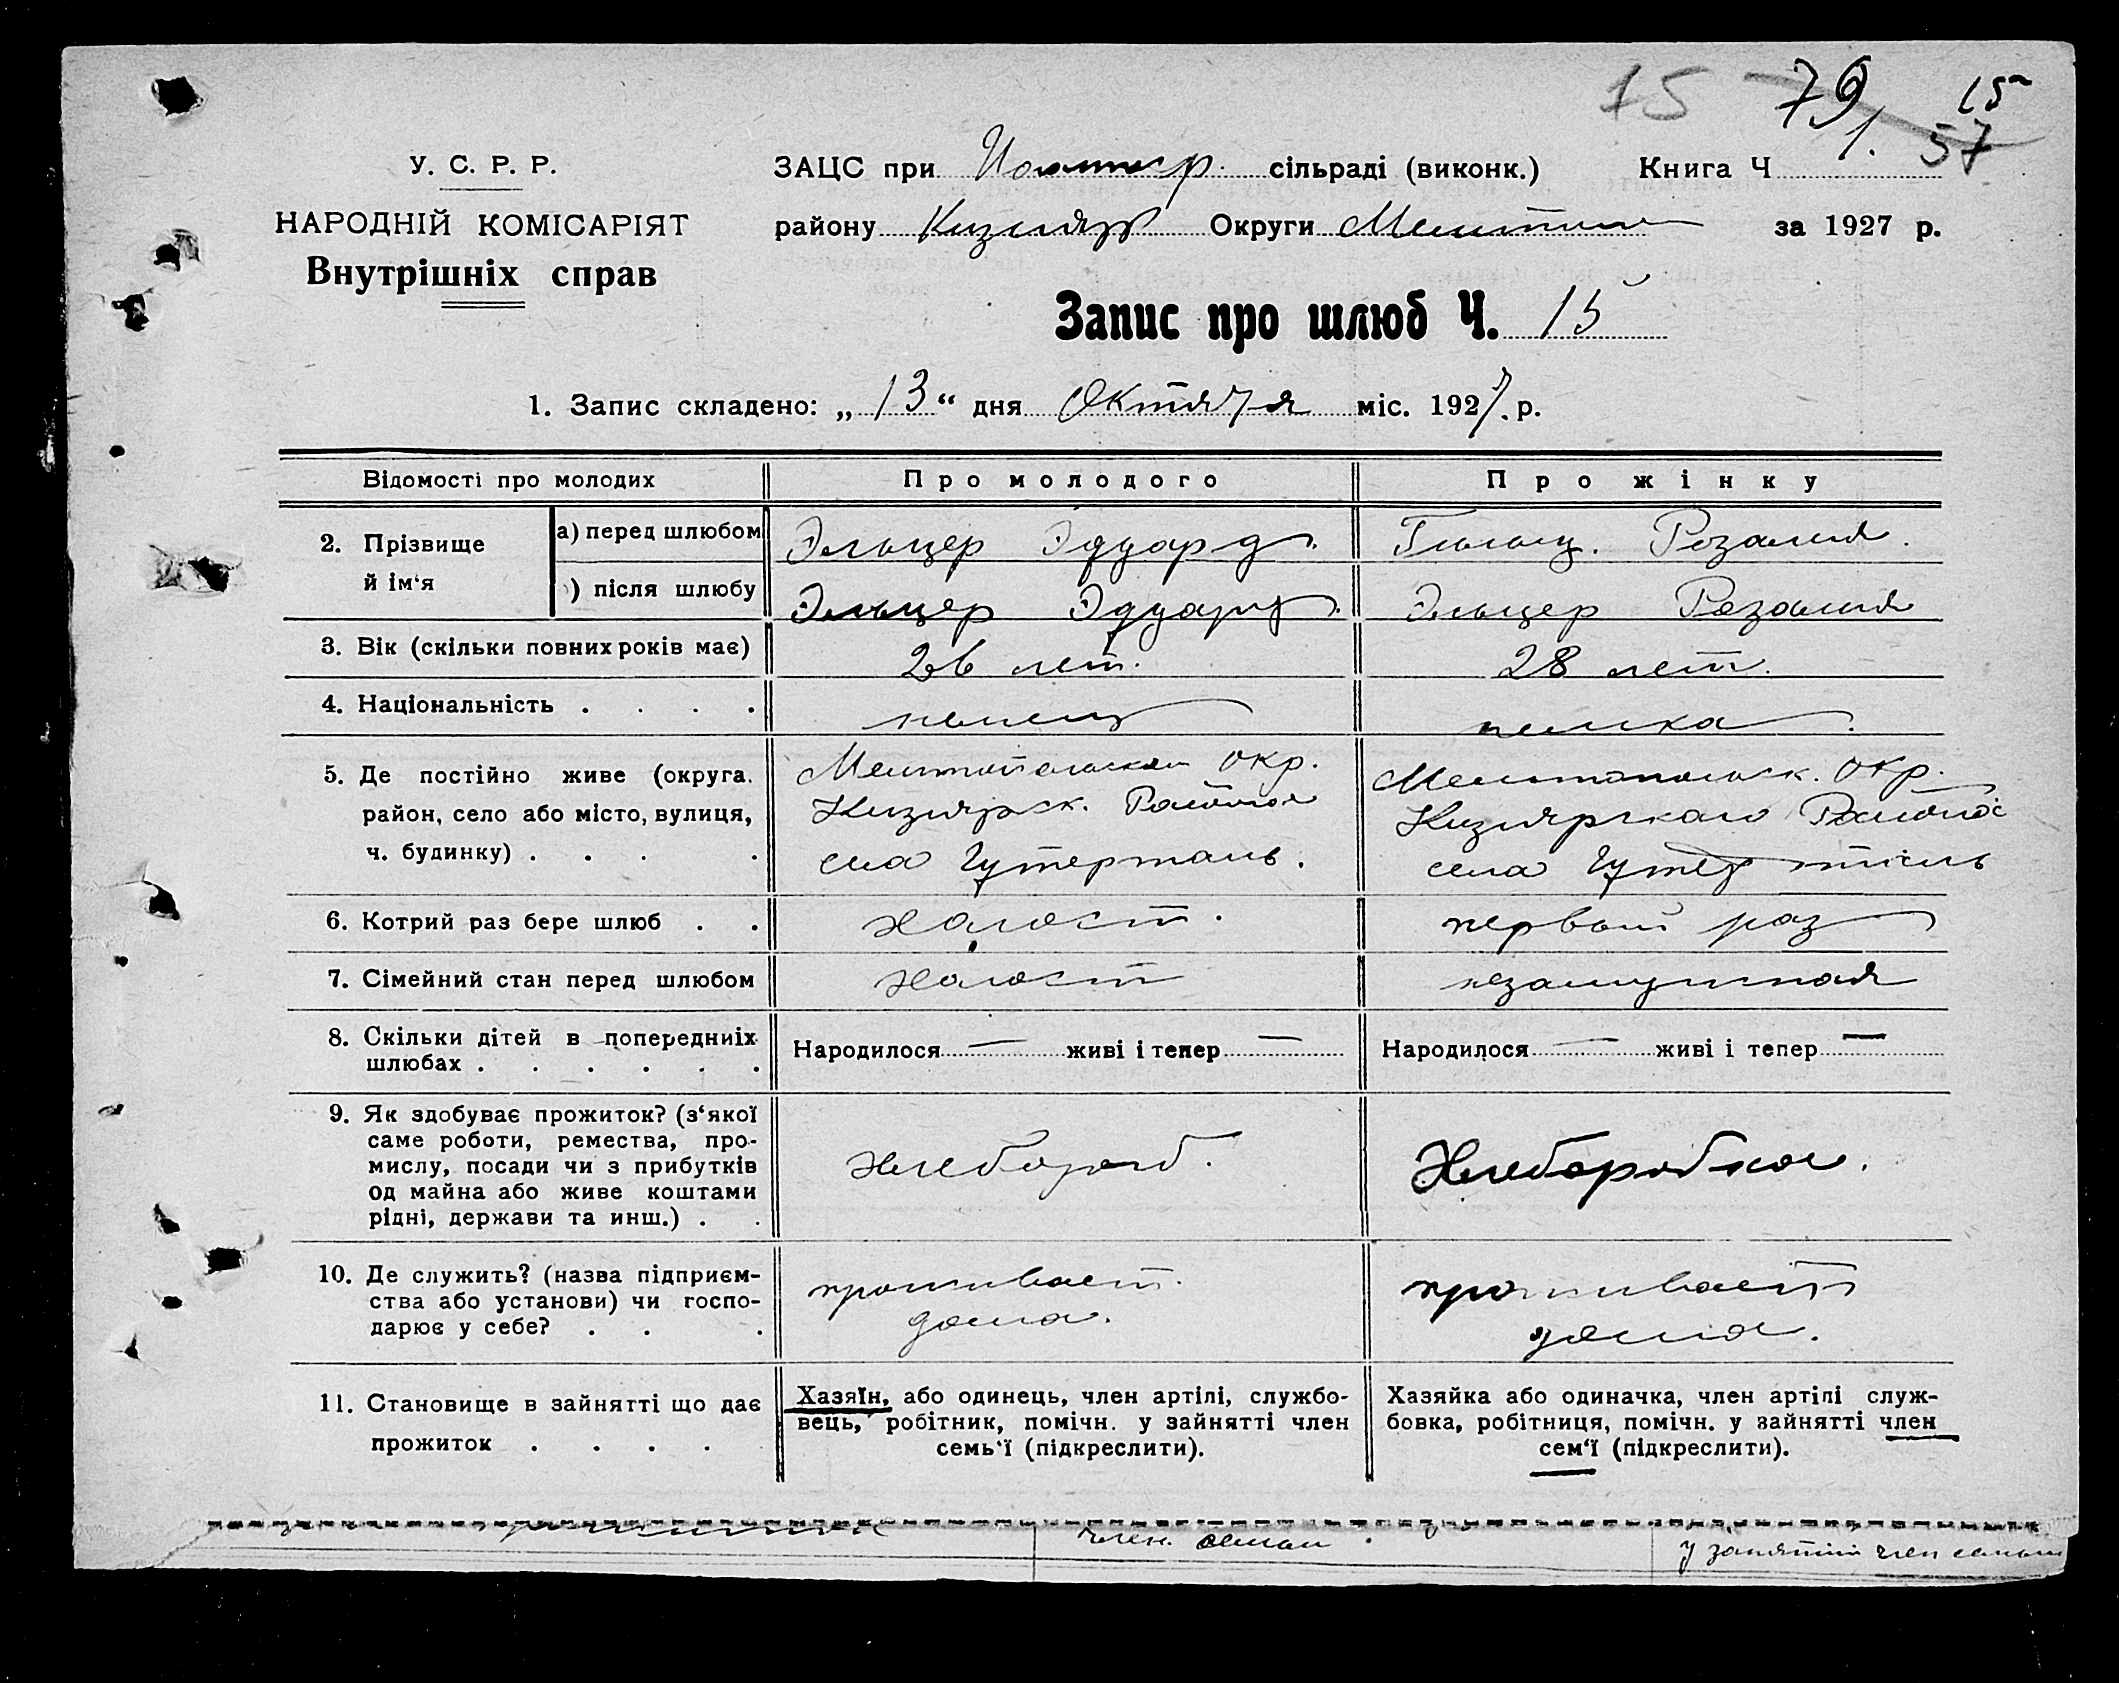 15 79 15
1. 57
У. С. Р. Р.
НАРОДНІЙ КОМІСАРІЯТ
Внутрішніх справ
ЗАЦС при сільраді (виконк.) Книга Ч
району Кизияр Округи Мелитоп за 1927 р.
Запис про шлюб Ч. 15
1. Запис складено: „13“ дня Октября міс. 1927 р.
Відомості про молодих Про молодого Про жінку
2. Прізвище й ім‘я
а) перед шлюбом Эльцер Эдуард. Розалия.
) після шлюбу Эльцер Эдуард. Эльцер Розалия
3. Вік (скільки повних років має) 26 лет. 28 лет.
4. Національність . . . . немец немка.
5. Де постійно живе (округа.
район, село або місто, вулиця,
ч. будинку) . . . .
Мелитопольской Окр.
Кизиярск. Района
села Гутерталь.
Мелитопольск. Окр.
Кизиярскаго Района
села Гутерталь
6. Котрий раз бере шлюб . . холост. первый раз
7. Сімейний стан перед шлюбом холост незамужная
8. Скільки дітей в попередниіх
шлюбах . . . . . .
Народилося — живі і тепер —
Народилося — живі і тепер —
9. Як здобуває прожиток? (з‘якої
саме роботи, ремества, про-
мислу, посади чи з прибутків
од майна або живе коштами
рідні, держави та инш.) . .
хлебороб.
Хлеборобка.
10. Де служить? (назва підприєм-
ства або установи) чи госпо-
дарює у себе? . . .
проживает
дома.
проживает
дома.
11. Становище в зайнятті що дає
прожиток . . . .
Хазяїн, або одинець, член артілі, службо-
вець, робітник, помічн. у зайнятті член
семь‘ї (підкреслити).
Хазяйка або одиначка, член артілі служ-
бовка, робітниця, помічн. у зайнятті член
сем‘ї (підкреслити).
член семьи.
у занятии член семьи